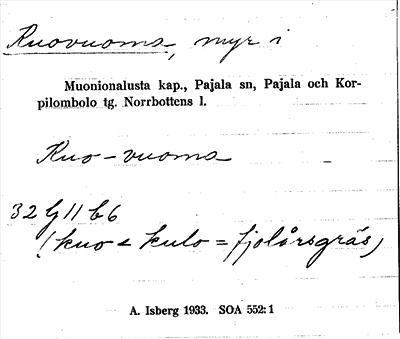 Kuovuoma, myr i
Muonionalusta kap., Pajala sn, Pajala och Kor-
pilombolo tg. Norrbottens l.
Kuo-vuoma
32 G 11 b 6
(kuo < kulo = fjolårsgräs)
A. Isberg 1933. SOA 552:1